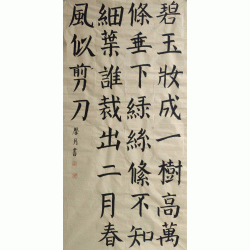 碧玉妝成一樹高萬
條垂下綠絲絛不知
細葉誰裁出二月春
風似剪刀